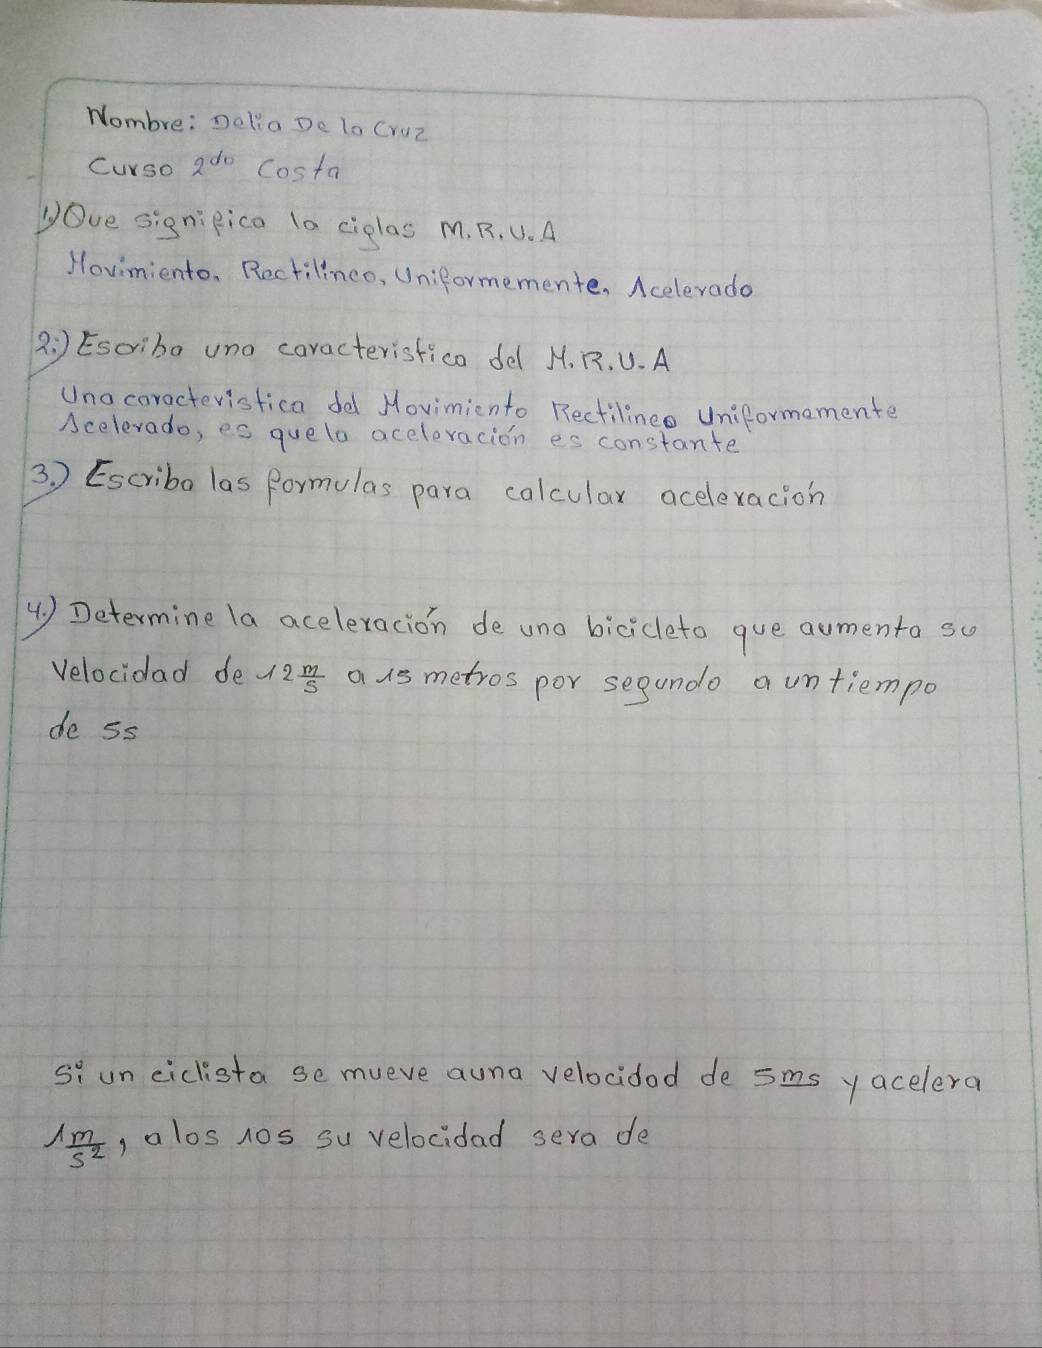 Nombre: Delia De la Cruz
Curso 2do Costa
1.) Que significa la ciglas M.R.U.A
Movimiento, Rectilineo, Uniformemente, Acelerado
2.) Escriba una caracteristica del M.R.U.A
Una caracteristica del Movimiento Rectilineo Uniformemente
Acelerado, es que la aceleración es constante
3.) Escriba las formulas para calcular aceleración
4.) Determine la aceleración de una bicicleta que aumenta su
Velocidad de 12 m/s a 15 metros por segundo a un tiempo
de 5s
Si un ciclista se mueve a una velocidad de 5 ms y acelera
1 m/s², a los 10s su velocidad sera de